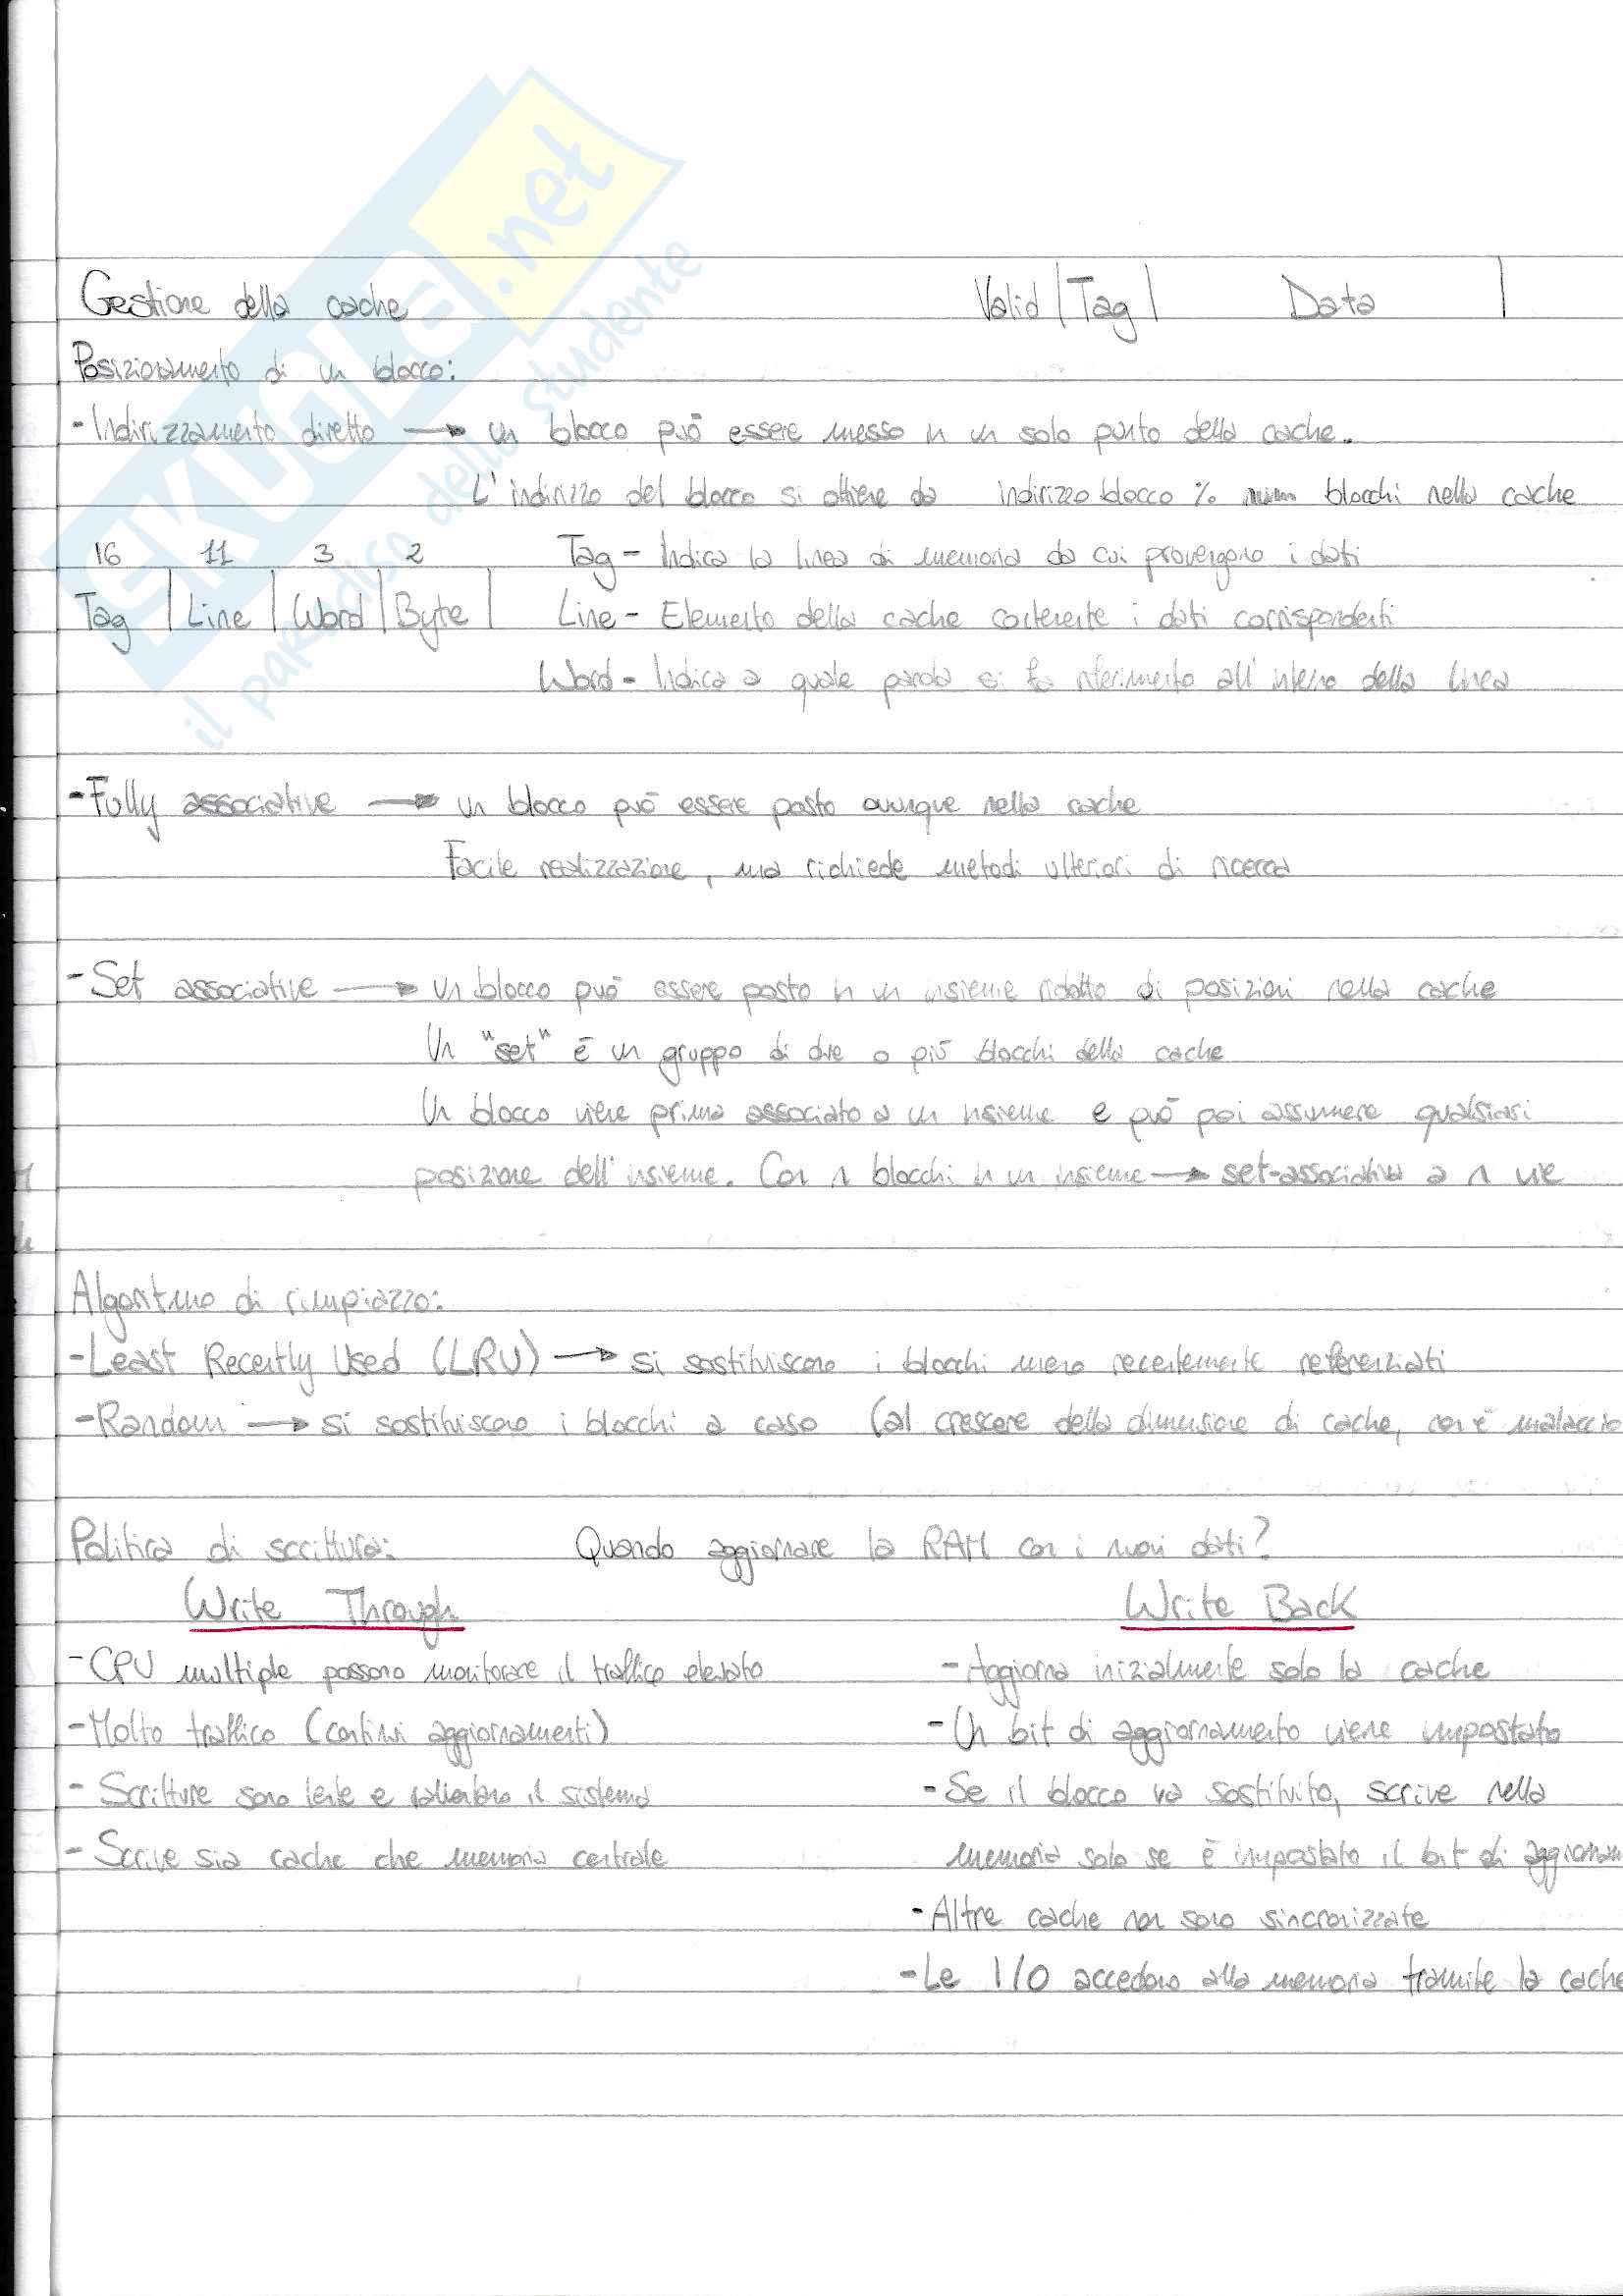 SKUOLA.net
il paradiso dello studente
Gestione della cache Valid | Tag | Data |
Posizionamento di un blocco:
- Indirizzamento diretto → un blocco può essere messo in un solo punto della cache.
L'indirizzo del blocco si ottiene da indirizzo blocco % blocchi nella cache
16 11 3 2 Tag - Indica la linea di memoria da cui provengono i dati
Tag | Line | Word | Byte | Line - Elemento della cache contenente i dati corrispondenti
Word - Indica a quale parola si fa riferimento all'interno della linea
- Fully associative → un blocco può essere posto ovunque nella cache
Facile realizzazione, ma richiede metodi ulteriori di ricerca
- Set associative → un blocco può essere posto in un insieme ridotto di posizioni nella cache
Un "set" è un gruppo di due o più blocchi della cache
Un blocco viene prima associato a un insieme e può poi assumere qualsiasi
posizione dell'insieme. Con n blocchi in un insieme → set-associativa a n vie
Algoritmo di rimpiazzo:
- Least Recently Used (LRU) → si sostituiscono i blocchi meno recentemente referenziati
- Random → si sostituiscono i blocchi a caso (al crescere della dimensione di cache, non è malaccio
Politica di scrittura: Quando aggiornare la RAM con i nuovi dati?
Write Through Write Back
- CPU multiple possono monitorare il traffico elevato - Aggiorna inizialmente solo la cache
- Molto traffico (continui aggiornamenti) - Un bit di aggiornamento viene impostato
- Scritture sono lente e rallentano il sistema - Se il blocco va sostituito, scrive nella
- Scrive sia cache che memoria centrale memoria solo se è impostato il bit di aggiornam
- Altre cache non sono sincronizzate
- Le I/O accedono alla memoria tramite la cache